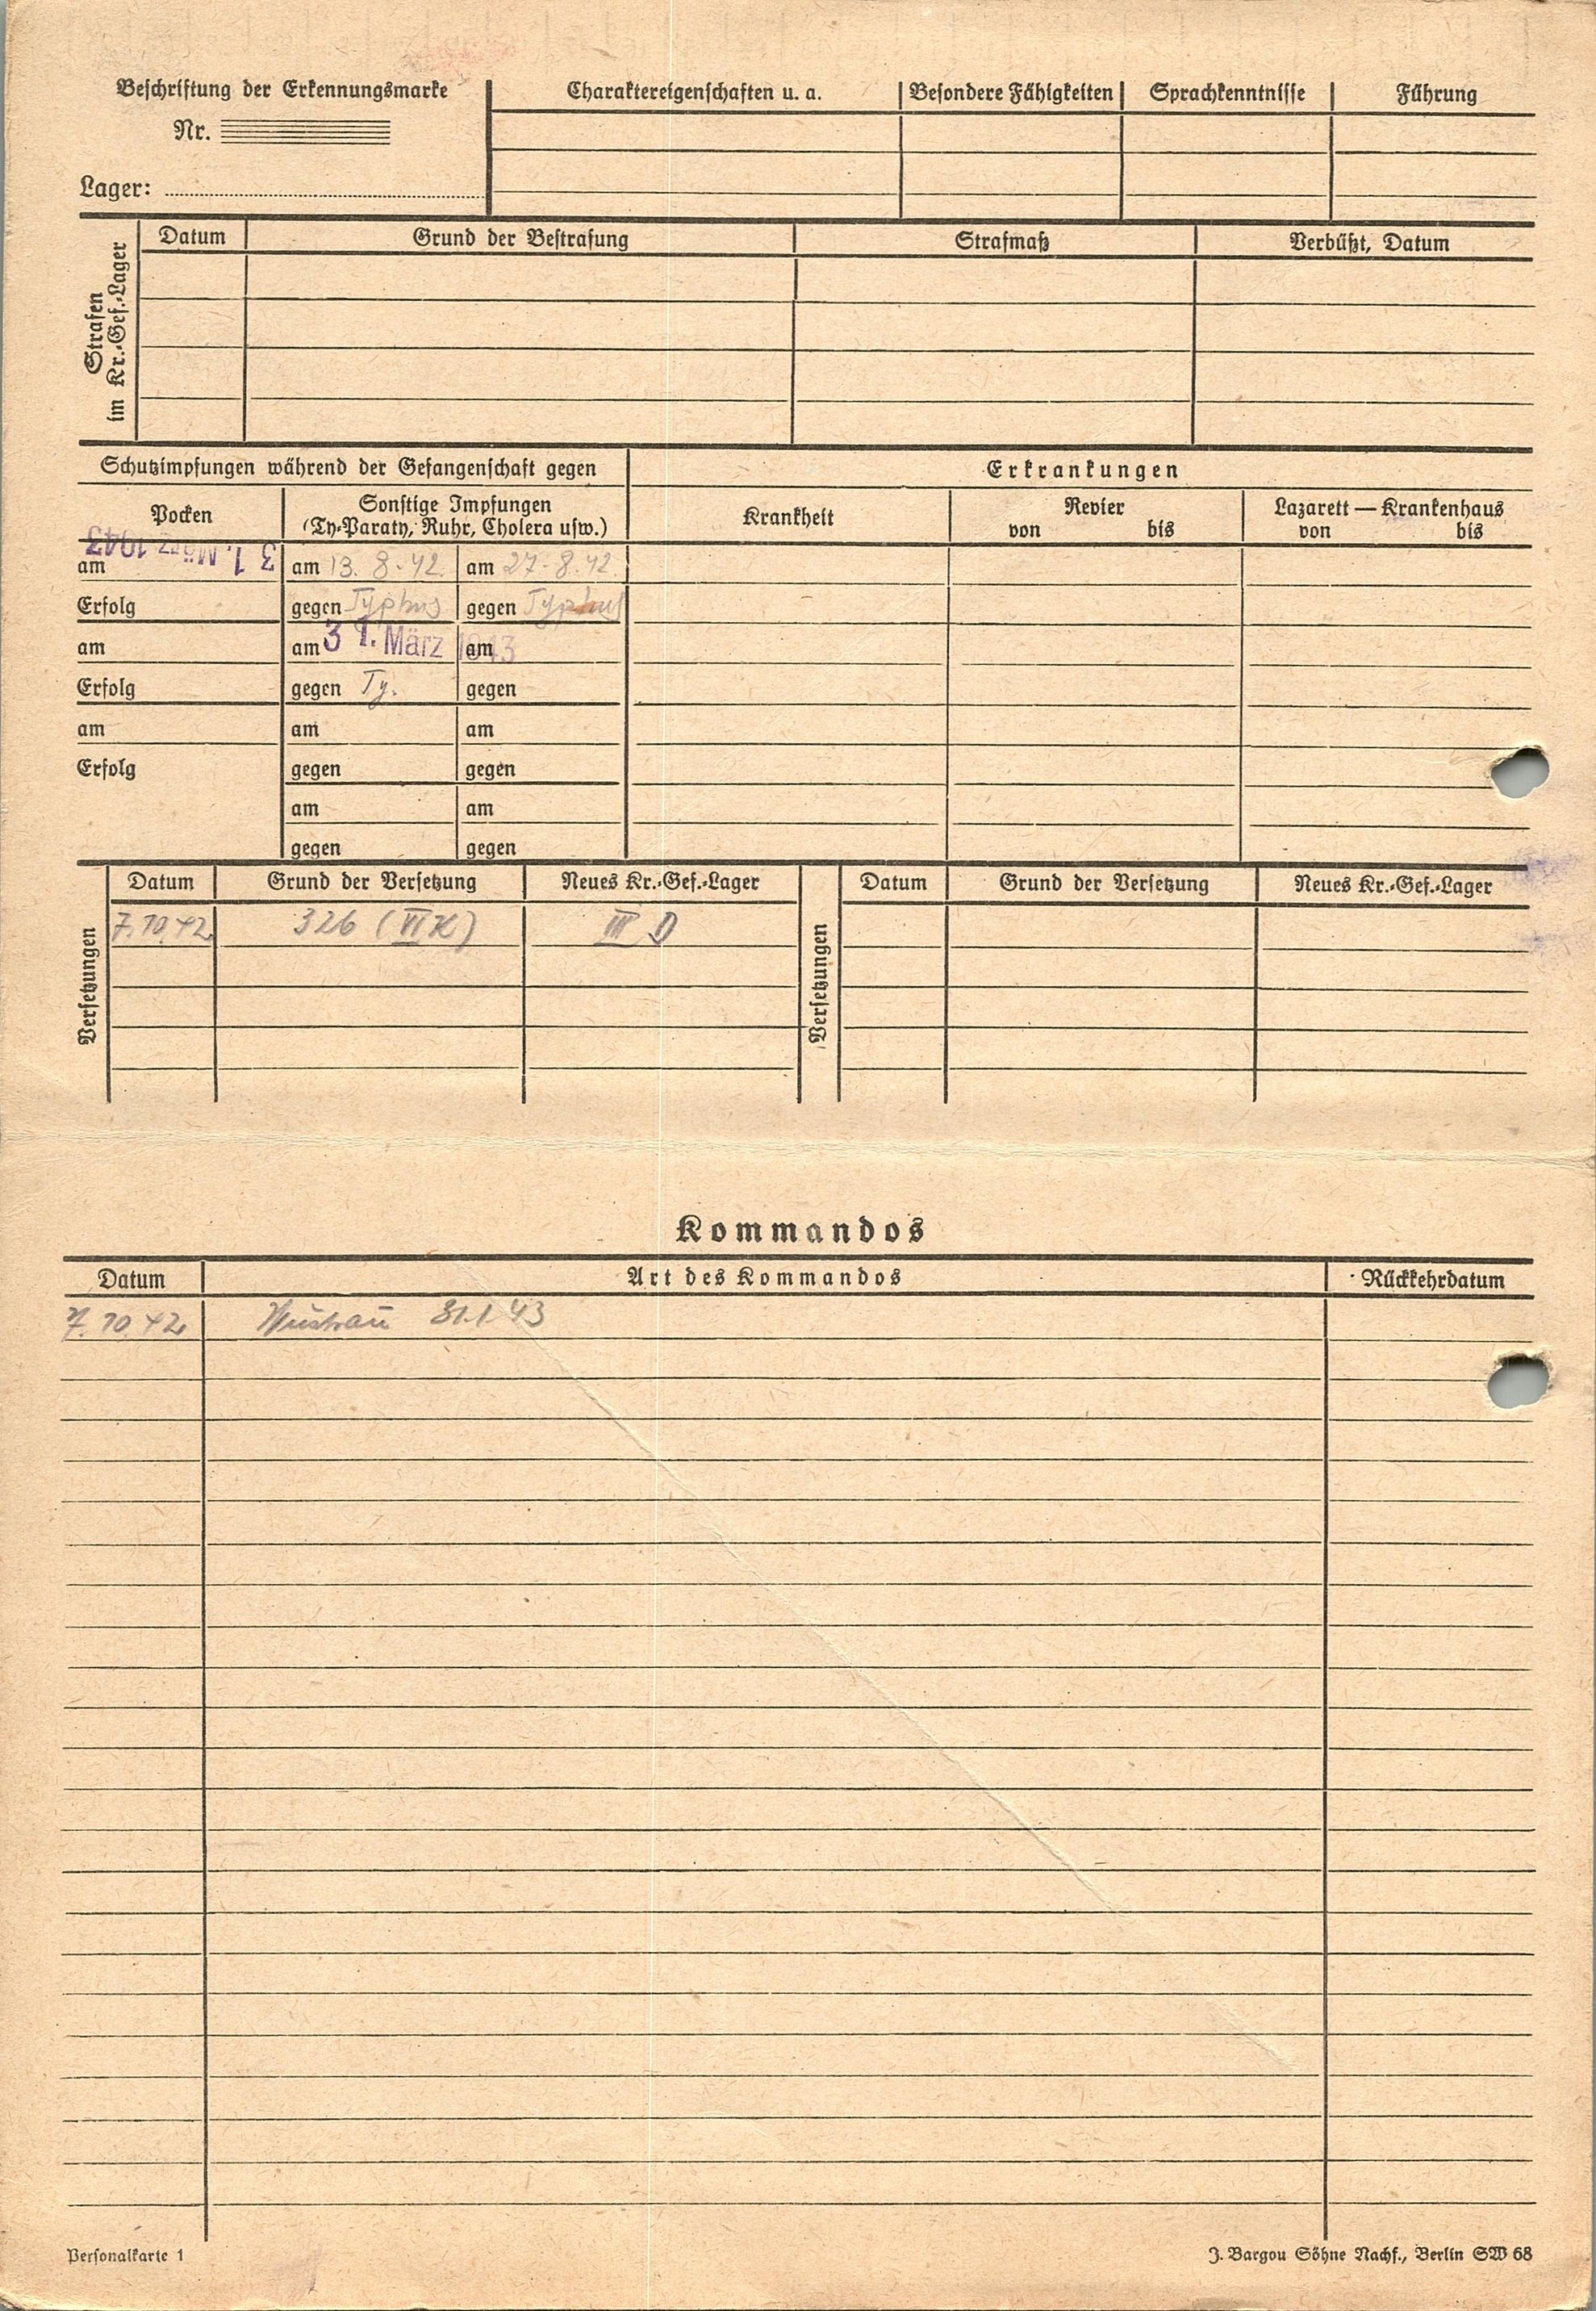 Beschriftung der Erkennungsmarke
Nr.
Lager:
Charaktereigenschaften u. a. Besondere Fähigkeiten Sprachkenntnisse Führung
Strafen
im Kr.-Gef.-Lager
Datum Grund der Bestrafung Strafmaß Verbüßt, Datum
Schutzimpfungen während der Gefangenschaft gegen Erkrankungen
Pocken
Sonstige Impfungen
(Ty-Paraty, Ruhr, Cholera usw.)
Krankheit
Revier
von bis
Lazarett — Krankenhaus
von bis
am 31. März 1943 am 13. 8. 42. am 27. 8. 42.
Erfolg gegen Typhus gegen Typhus
am am 31. März 1943 am
Erfolg gegen Ty. gegen
am am am
Erfolg gegen gegen
am am
gegen gegen
Versetzungen
Datum Grund der Versetzung Neues Kr.-Gef.-Lager
7.10.42 326 (VI K) III D
Versetzungen
Datum Grund der Versetzung Neues Kr.-Gef.-Lager
Kommandos
Datum Art des Kommandos Rückkehrdatum
7. 10 42 31.1 43
Personalkarte 1
J. Bargou Söhne Nachf., Berlin SW 68